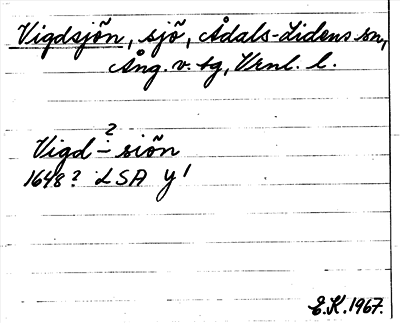 Vigdsjön, sjö, Ådals-Lidens sn,
Ång. v. tg, Vrnl. l.
?
Vigd÷siön
1648? LSA Y'
E.K. 1967.